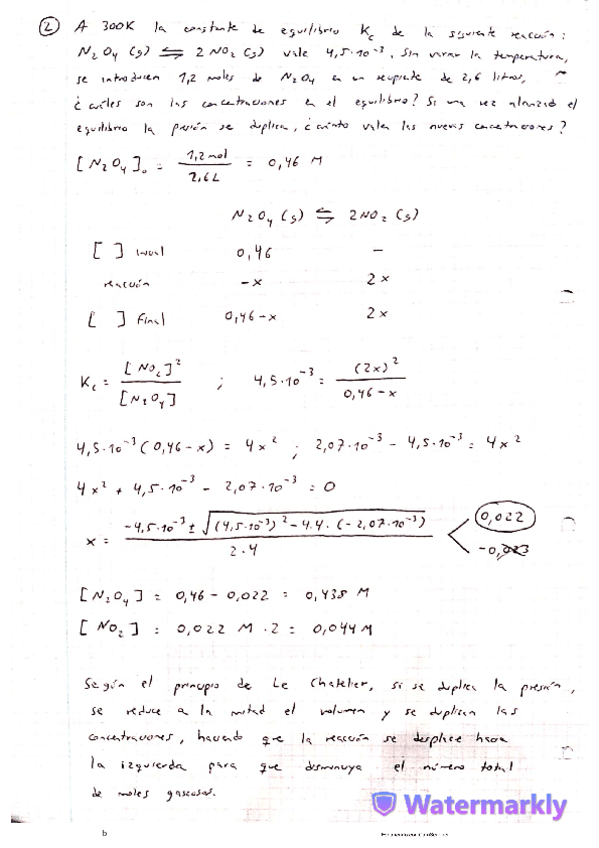 ② A 300K la constante de equilibrio Kc de la siguiente reacción:
N₂O₄ (g) ⇌ 2 NO₂ (g) vale 4,5·10⁻³. Sin variar la temperatura,
se introducen 1,2 moles de N₂O₄ en un recipiente de 2,6 litros,
¿cuáles son las concentraciones en el equilibrio? Si una vez alcanzado el
equilibrio la presión se duplica, ¿cuánto valen las nuevas concentraciones?
[N₂O₄]₀ = 1,2 mol / 2,6 L = 0,46 M
N₂O₄ (g) ⇌ 2NO₂ (g)
[ ] inicial 0,46 –
reacción -x 2x
[ ] Final 0,46-x 2x
Kc = [NO₂]² / [N₂O₄] ; 4,5·10⁻³ = (2x)² / 0,46-x
4,5·10⁻³(0,46-x) = 4x² ; 2,07·10⁻³ - 4,5·10⁻³ = 4x²
4x² + 4,5·10⁻³ - 2,07·10⁻³ = 0
x = -4,5·10⁻³ ± √(4,5·10⁻³)² - 4·4·(-2,07·10⁻³) / 2·4 < 0,022
-0,023
[N₂O₄] = 0,46 - 0,022 = 0,438 M
[NO₂] = 0,022 M · 2 = 0,044 M
Según el principio de Le Chatelier, si se duplica la presión,
se reduce a la mitad el volumen y se duplican las
concentraciones, haciendo que la reacción se desplace hacia
la izquierda para que disminuya el número total
de moles gaseosos.
Watermarkly
b